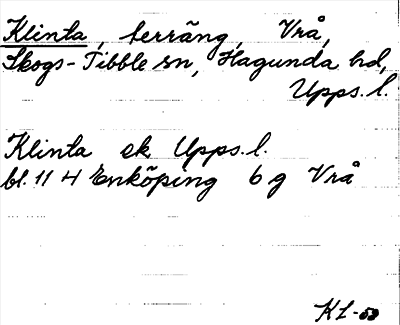 Klinta, terräng, Vrå,
Skogs-Tibble sn, Hagunda hd,
Upps. l.
Klinta ek Upps. l.
bl. 11 H Enköping 6 g Vrå